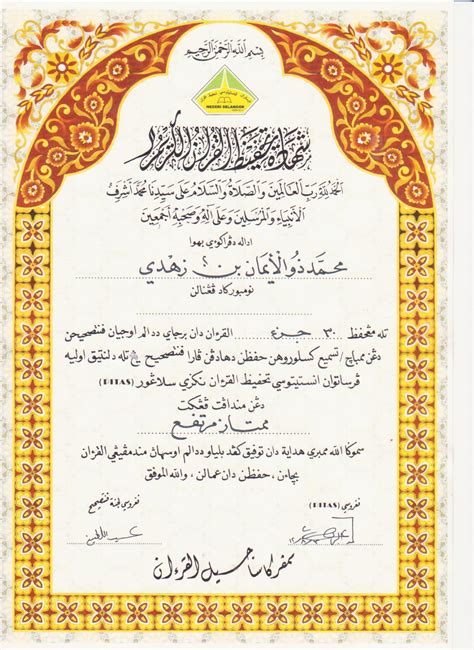 بِسْمِ اللَّهِ الرَّحْمَٰنِ الرَّحِيمِ
NEGERI SELANGOR
شهادة تحفيظ القرآن الكريم
الْحَمْدُ لِلَّهِ رَبِّ الْعَالَمِينَ وَالصَّلَاةُ وَالسَّلَامُ عَلَى سَيِّدِنَا مُحَمَّدٍ أَشْرَفِ
الْأَنْبِيَاءِ وَالْمُرْسَلِينَ وَعَلَى آلِهِ وَصَحْبِهِ أَجْمَعِينَ
اداله دڤراكوي بهوا
محمد ذو الإيمان بن زهدي
نومبور كاد ڤڠنالن
تله مڠحفظ ٣٠ جزء القرءان دان برجاي ددالم اوجيان فنصحيحن
دڠن ممباچ / تسميع كسلوروهن حفظن دهادڤن ڤارا فنصحيح تله دلنتيق اوليه
ڤرساتوان انستيتوسي تحفيظ القرءان نڬري سلاڠور (PITAS)
دڠن منداڤت ڤڠكت
ممتاز مرتفع
سموݢا الله ممبري هداية دان توفيق كڤد بلياو ددالم اوسهاڽ مندمڤيڠي القرءان
بچاءن، حفظن دان عمالن، والله الموفق
ڤڠروسي (PITAS)
ڤڠروسي لجنة فنصحيح